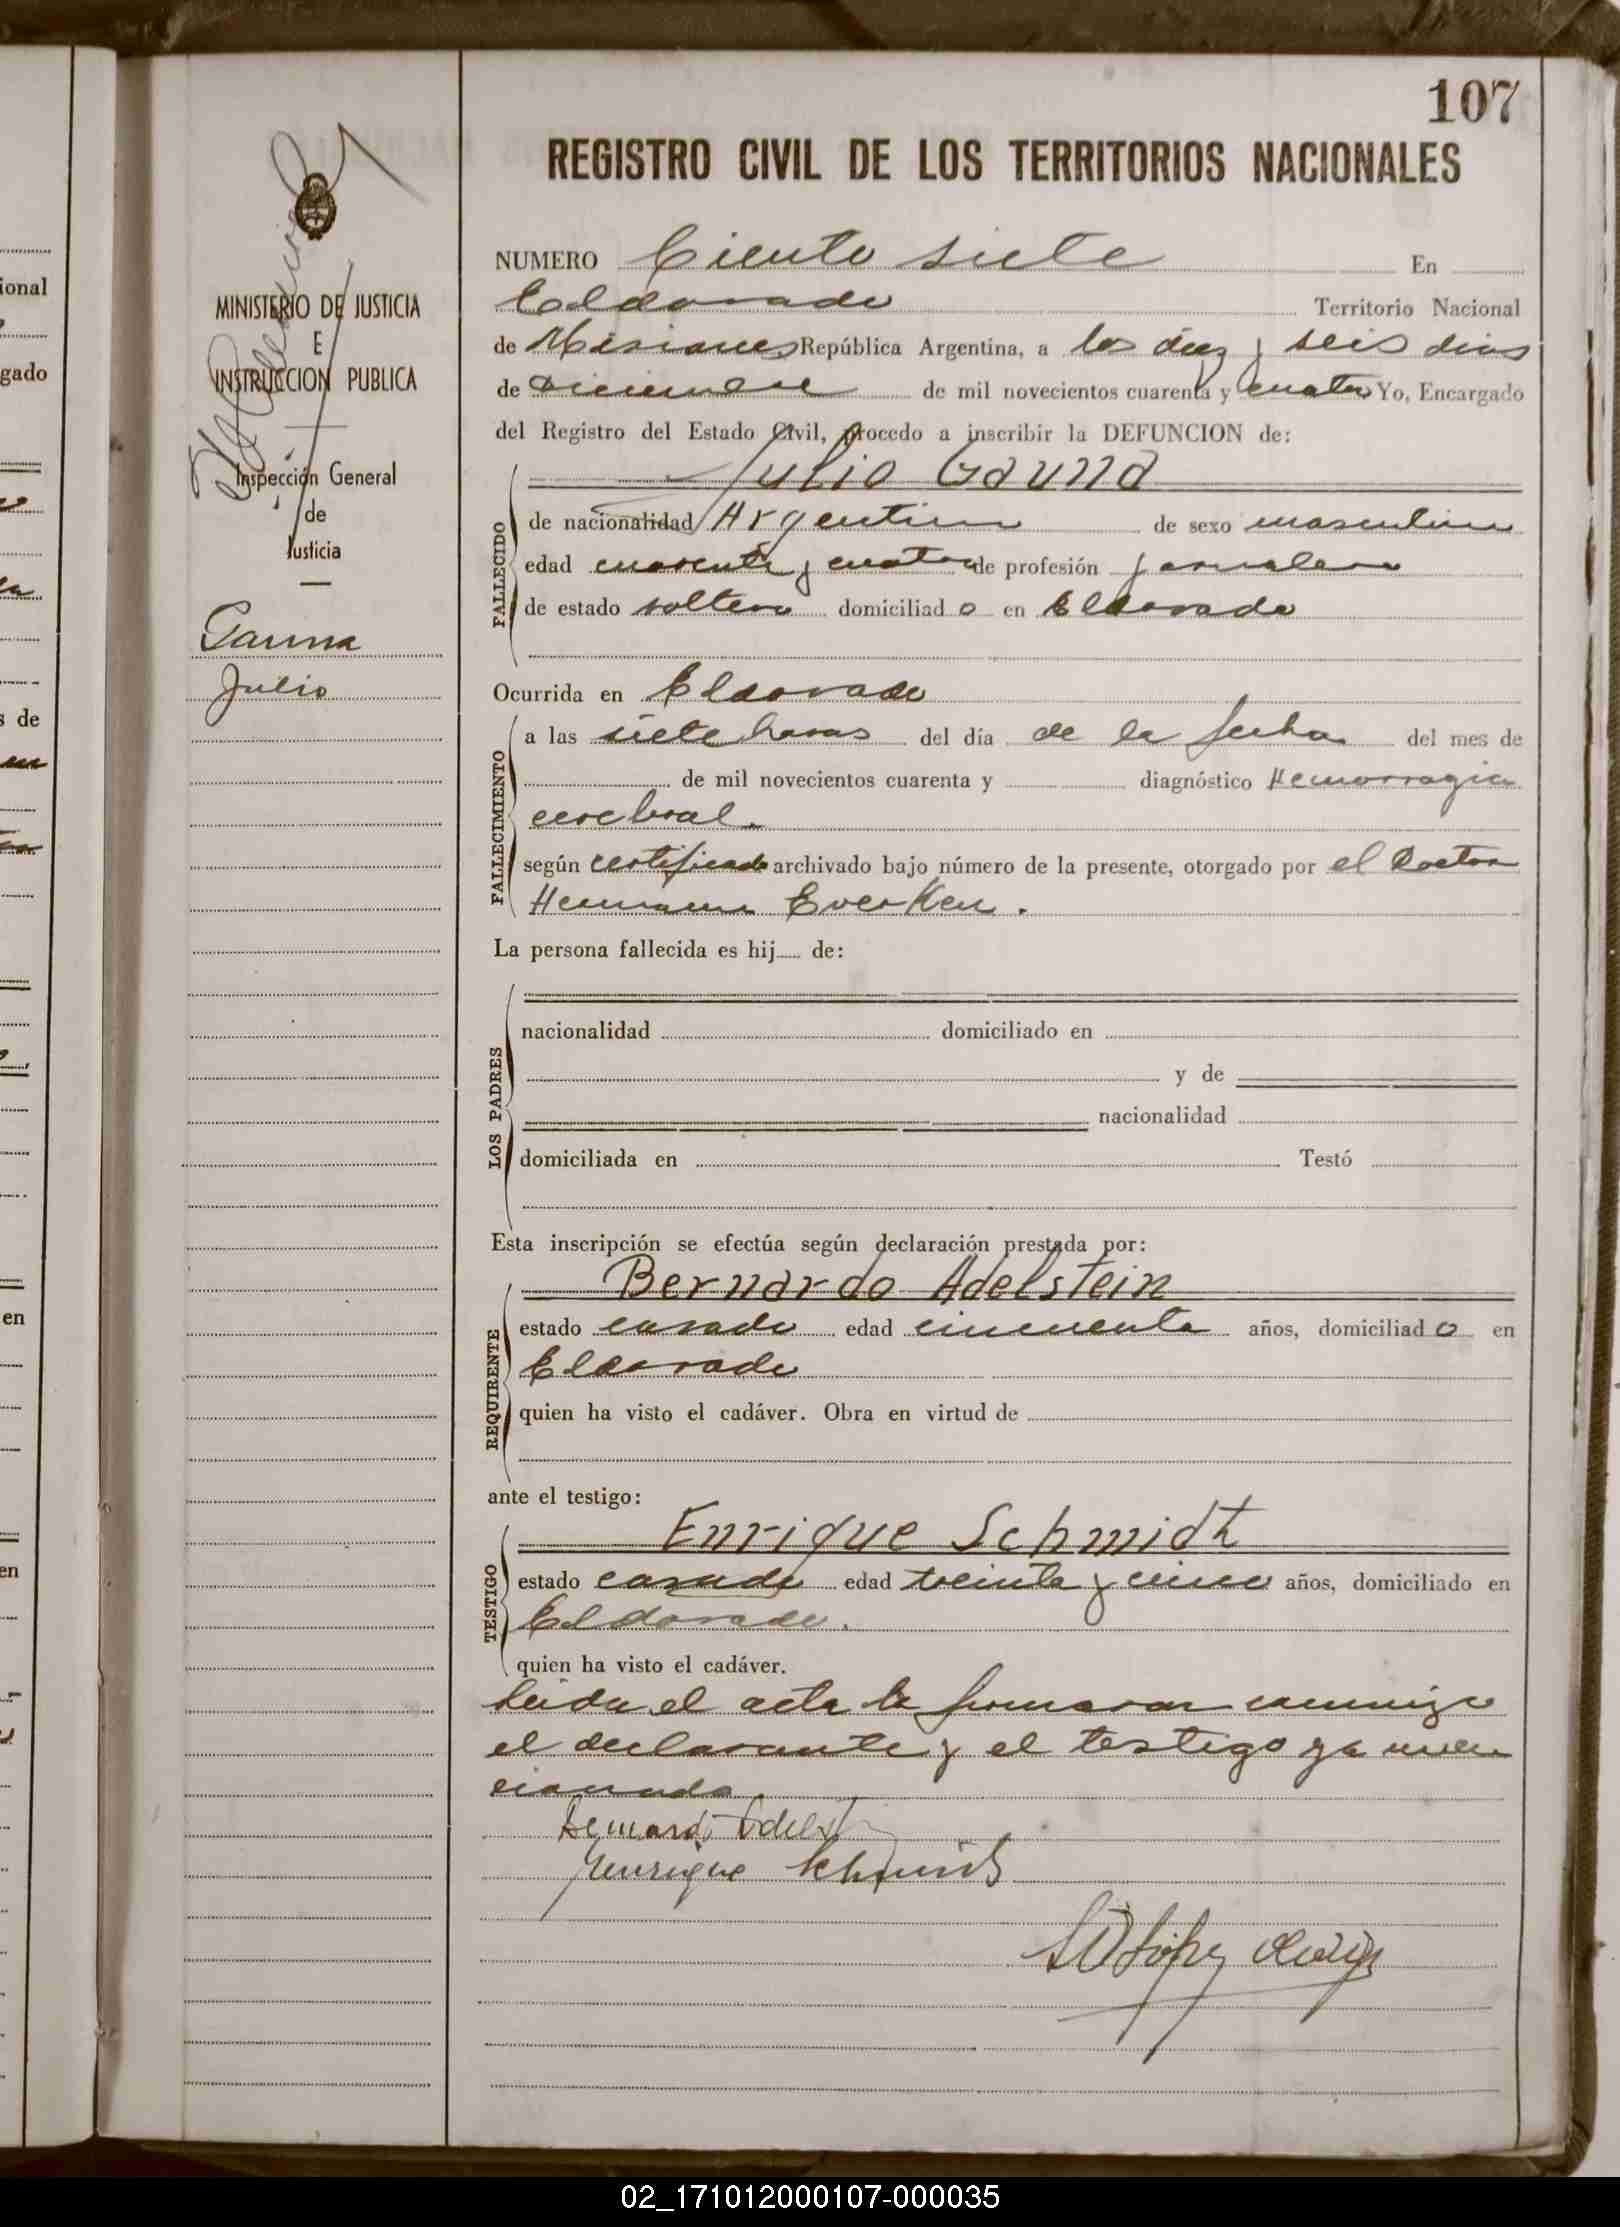 107
REGISTRO CIVIL DE LOS TERRITORIOS NACIONALES
MINISTERIO DE JUSTICIA
E
INSTRUCCION PUBLICA
Inspección General
de
Justicia
Gauna
Julio
NUMERO Ciento siete En
Eldorado Territorio Nacional
de Misiones República Argentina, a los diez y seis dias
de Diciembre de mil novecientos cuarenta y cuatro Yo, Encargado
del Registro del Estado Civil, procedo a inscribir la DEFUNCION de:
Julio Gauna
FALLECIDO
de nacionalidad Argentina de sexo masculino
edad cuarenta y cuatro de profesión jornalero
de estado soltero domiciliad o en Eldorado
Ocurrida en Eldorado
FALLECIMIENTO
a las siete horas del día de la fecha del mes de
de mil novecientos cuarenta y diagnóstico Hemorragia
cerebral.
según certificado archivado bajo número de la presente, otorgado por el Doctor
Hermann Everken.
La persona fallecida es hij de:
LOS PADRES
nacionalidad domiciliado en
y de
nacionalidad
domiciliada en Testó
Esta inscripción se efectúa según declaración prestada por:
Bernardo Adelstein
REQUIRENTE
estado casado edad cincuenta años, domiciliad o en
Eldorado
quien ha visto el cadáver. Obra en virtud de
ante el testigo:
Enrique Schmidt
TESTIGO
estado casado edad treinta y cinco años, domiciliado en
Eldorado.
quien ha visto el cadáver.
Leida el acta la firmaron conmigo
el declarante y el testigo ya men
cionado
Bernardo Adelst
Henrique Schmidt
02_171012000107-000035